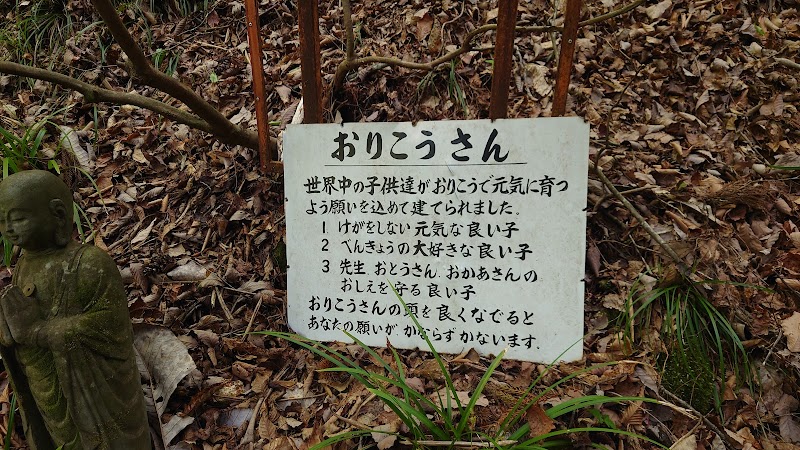 おりこうさん
世界中の子供達がおりこうで元気に育つ
よう願いを込めて建てられました。
1 けがをしない元気な良い子
2 べんきょうの大好きな良い子
3 先生、おとうさん、おかあさんの
おしえを守る良い子
おりこうさんの頭を良くなでると
あなたの願いがかならずかないます。